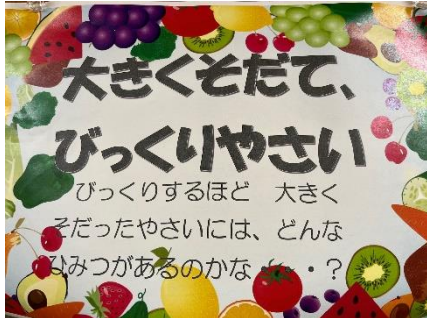 大きくそだて、
びっくりやさい
びっくりするほど　大きく
そだったやさいには、どんな
ひみつがあるのかな・・・？